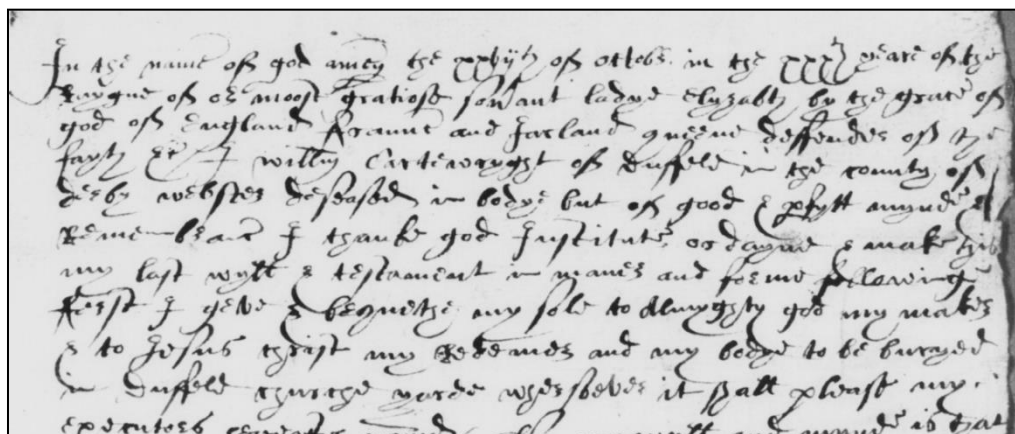 In the name of god amen the xxviijth of octobr in the xxxth yeare of the
Raygne of or moost gratiose sovrant ladye elyzabth by the grace of
god of England fraunce and Ireland queene deffender of the
fayth &c I willm Cartewryght of duffeld in the county of
derby webster deseased in bodye but of good & pfytt mynde &
Remembranc I thanke god Institute ordayne & make this
my last wyll & testament in maner and forme following
ferst I geve & bequethe my sole to Allmyghty god my maker
& to Jesus christ my Redemer and my bodye to be buryed
in duffeld churche yarde whersoever it shall please my
executors mynde is that